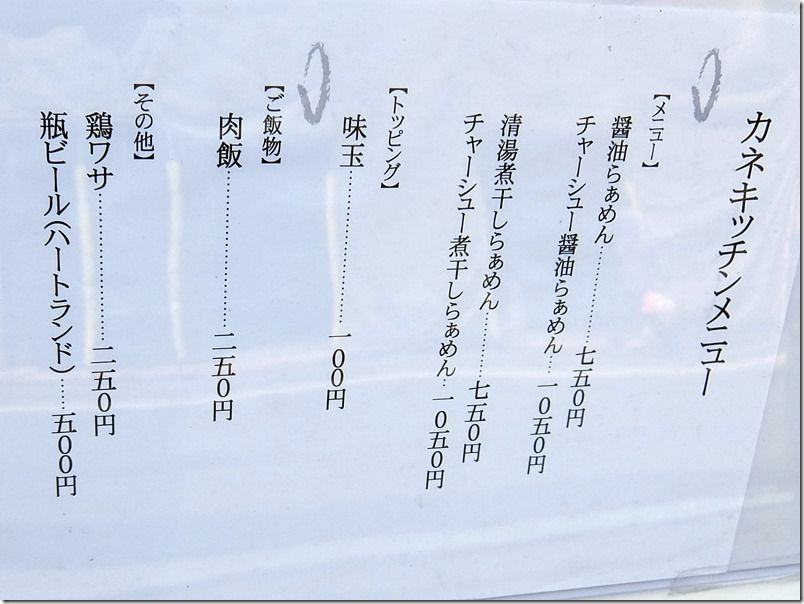 カネキッチンメニュー
【メニュー】
醤油らぁめん…………七五0円
チャーシュー醤油らぁめん…一0五0円
清湯煮干しらぁめん………七五0円
チャーシュー煮干しらぁめん…一0五0円
【トッピング】
味玉………………一00円
【ご飯物】
肉飯………………二五0円
【その他】
鶏ワサ………………二五0円
瓶ビール(ハートランド)……五00円